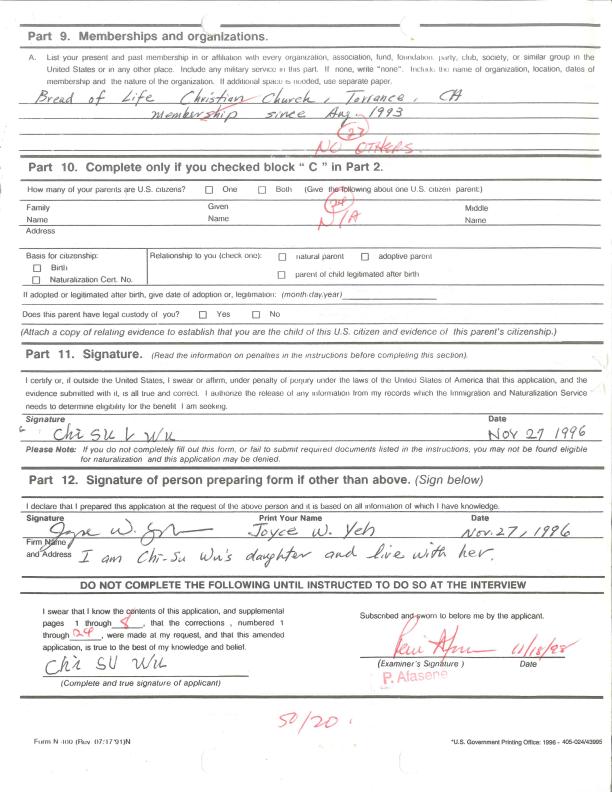 Part 9. Memberships and organizations.
A. List your present and past membership in or affiliation with every organization, association, fund, foundation, party, club, society, or similar group in the
United States or in any other place. Include any military service in this part. If none, write "none". Include the name of organization, location, dates of
membership and the nature of the organization. If additional space is needed, use separate paper.
Bread of Life Christian Church, Torrance, CA
membership since Aug. 1993
23
NO OTHERS.
Part 10. Complete only if you checked block " C " in Part 2.
How many of your parents are U.S. citizens? One Both (Give the following about one U.S. citizen parent:)
Family Given 24 Middle
Name Name N/A Name
Address
Basis for citizenship: Relationship to you (check one): natural parent adoptive parent
Birth
Naturalization Cert. No. parent of child legitimated after birth
If adopted or legitimated after birth, give date of adoption or, legitimation: (month/day/year)
Does this parent have legal custody of you? Yes No
(Attach a copy of relating evidence to establish that you are the child of this U.S. citizen and evidence of this parent's citizenship.)
Part 11. Signature. (Read the information on penalties in the instructions before completing this section).
I certify or, if outside the United States, I swear or affirm, under penalty of perjury under the laws of the United States of America that this application, and the
evidence submitted with it, is all true and correct. I authorize the release of any information from my records which the Immigration and Naturalization Service
needs to determine eligibility for the benefit I am seeking.
Signature Date
Chi SU WU Nov 27 1996
Please Note: If you do not completely fill out this form, or fail to submit required documents listed in the instructions, you may not be found eligible
for naturalization and this application may be denied.
Part 12. Signature of person preparing form if other than above. (Sign below)
I declare that I prepared this application at the request of the above person and it is based on all information of which I have knowledge.
Signature Print Your Name Date
Joyce W. Yeh Nov. 27, 1996
Firm Name
and Address I am Chi-Su Wu's daughter and live with her.
DO NOT COMPLETE THE FOLLOWING UNTIL INSTRUCTED TO DO SO AT THE INTERVIEW
I swear that I know the contents of this application, and supplemental
pages 1 through 8, that the corrections, numbered 1
through 24, were made at my request, and that this amended
application, is true to the best of my knowledge and belief.
Chi SU WU
(Complete and true signature of applicant)
Subscribed and sworn to before me by the applicant.
11/18/98
(Examiner's Signature) Date
P. Afasene
50/20.
Form N-400 (Rev. 07/17/91)N *U.S. Government Printing Office: 1996 - 405-024/43995